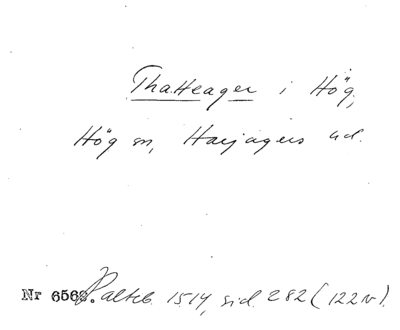 Thatteager i Hög,
Hög sn, Harjagers hd.
Nr 6568. Palteb 1514, sid 282 (122v).